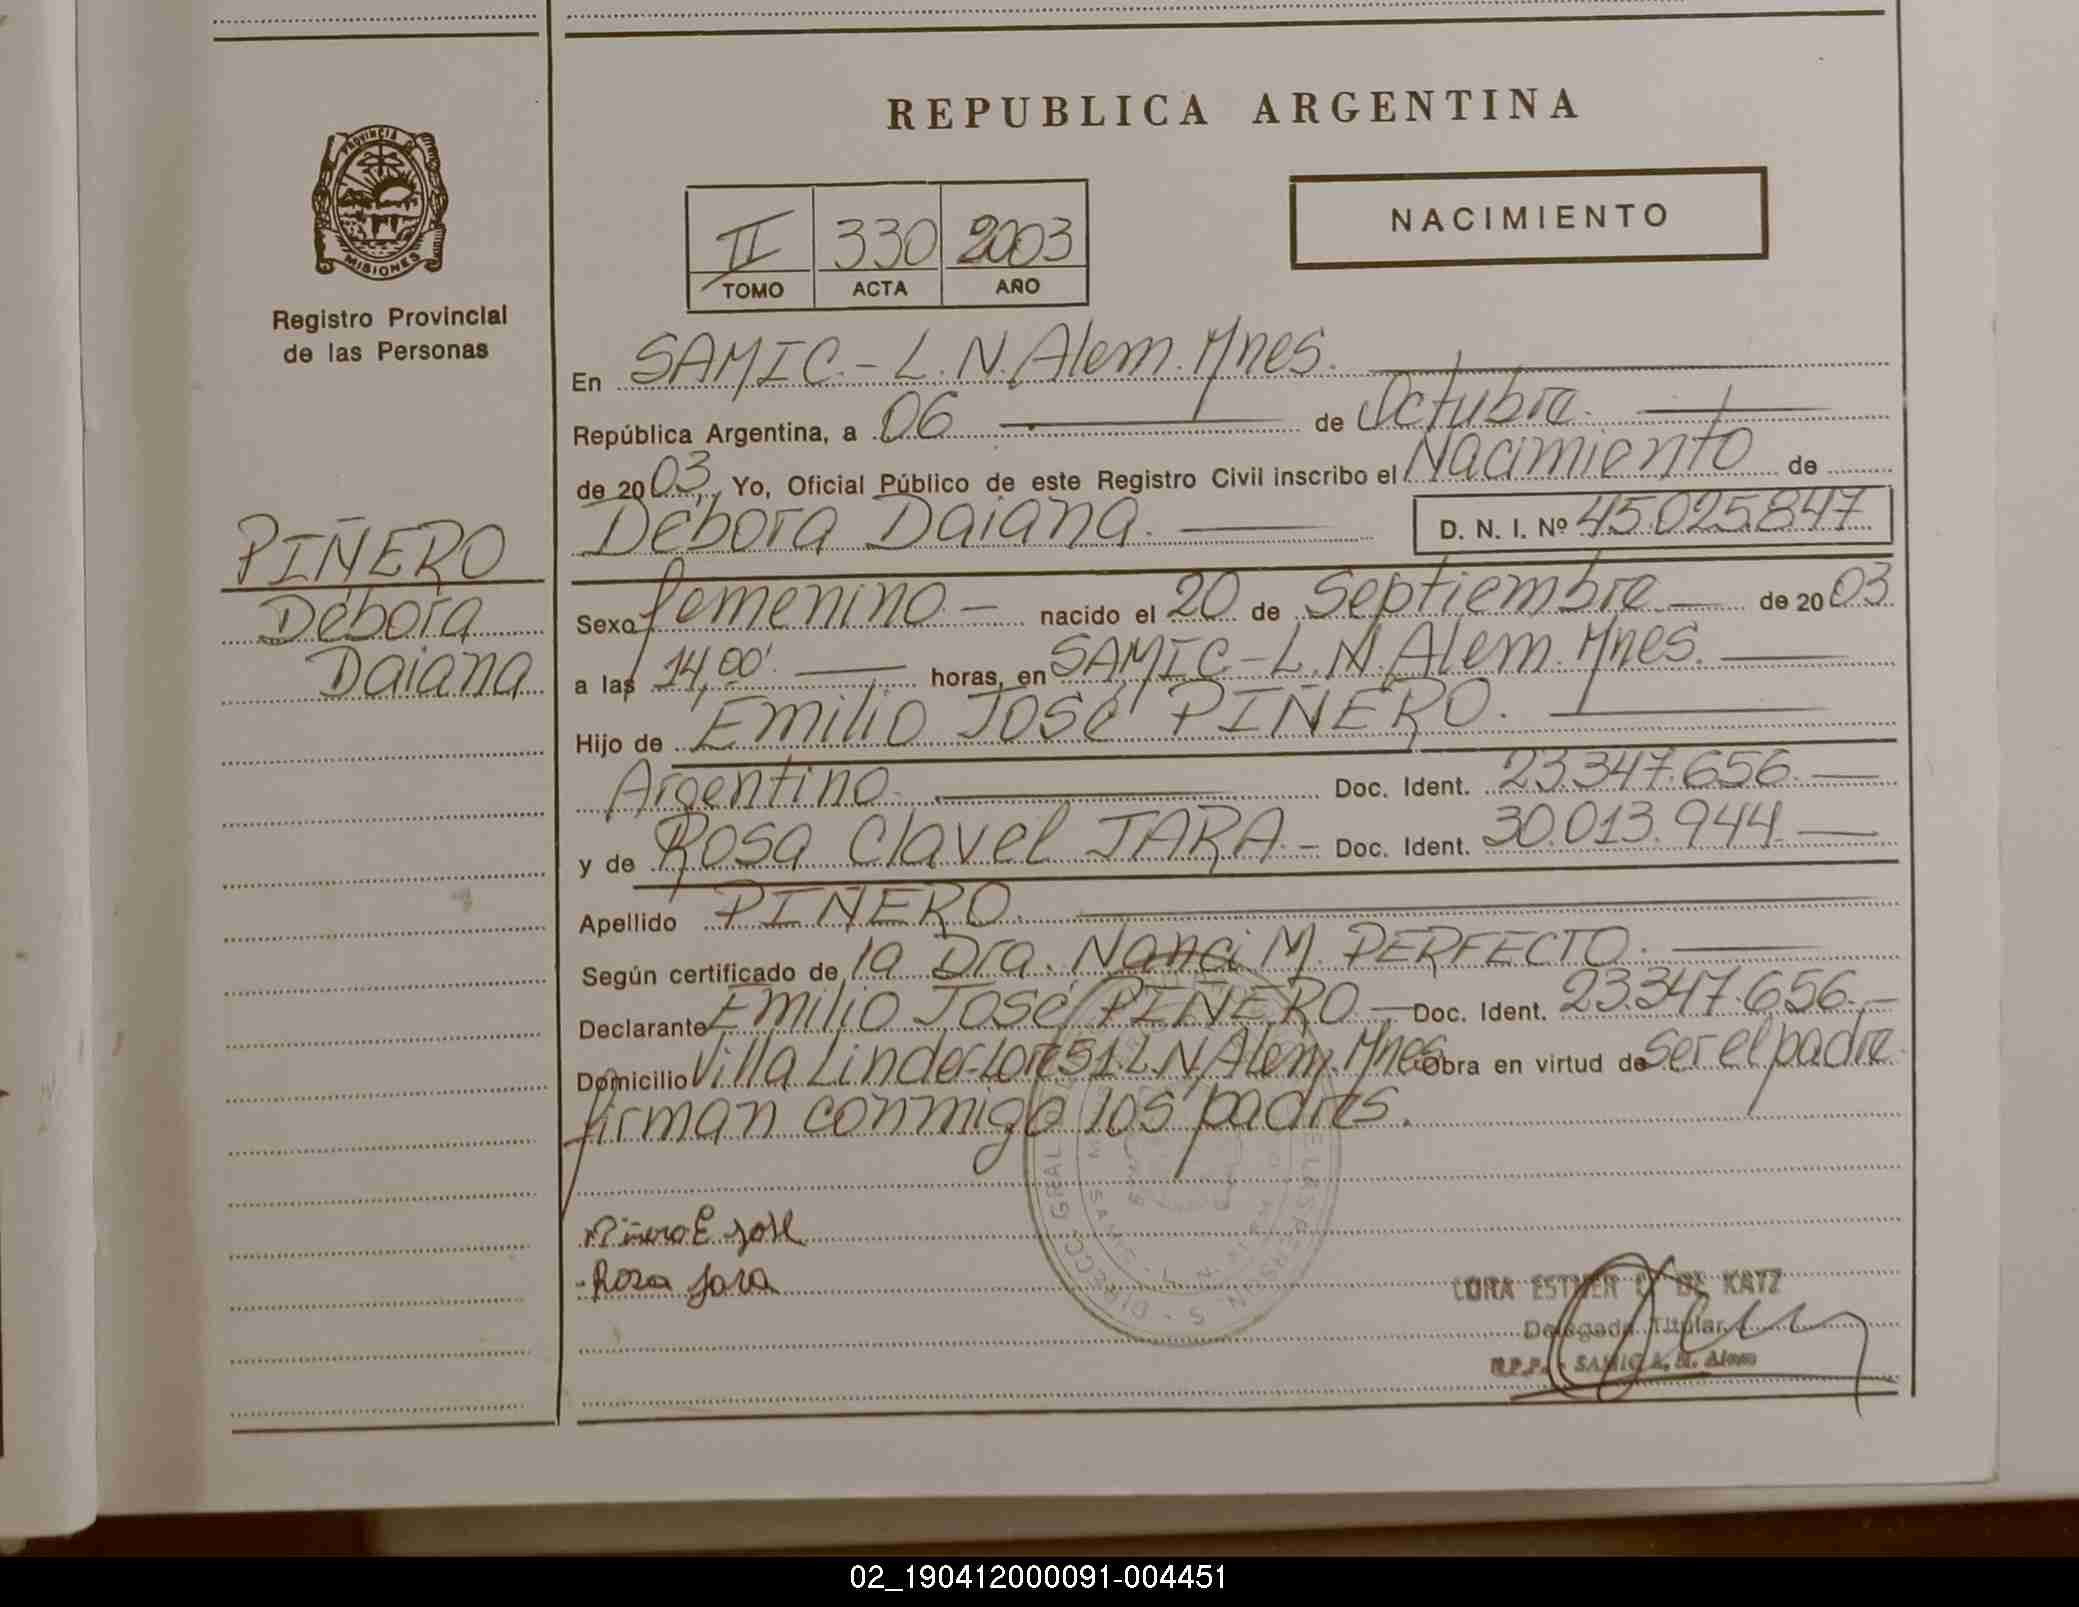 REPUBLICA ARGENTINA
PROVINCIA DE
MISIONES
Registro Provincial
de las Personas
II 330 2003
TOMO ACTA AÑO
NACIMIENTO
En SAMIC.- L.N. Alem. Mnes.
República Argentina, a 06 de Octubre.
de 2003, Yo, Oficial Público de este Registro Civil inscribo el Nacimiento de
Débora Daiana. D. N. I. Nº 45.025.847
PIÑERO
Débora
Daiana
Sexo femenino.- nacido el 20 de Septiembre de 2003
a las 14,00'. horas, en SAMIC-L.N. Alem. Mnes.
Hijo de Emilio José PIÑERO.
Argentino. Doc. Ident. 23.347.656.
y de Rosa Clavel JARA.- Doc. Ident. 30.013.944.
Apellido PIÑERO.
Según certificado de la Dra. Nanci M. PERFECTO.
Declarante Emilio José PIÑERO.- Doc. Ident. 23.347.656.-
Domicilio Villa Linda- 51. L.N. Alem. Mnes. Obra en virtud de Ser el padre
firman conmigo los padres.
Piñero E José
Rosa Jara
ESTHER C. DE KATZ
Delegada Titular
R.P.P. - SAMIC L. N. Alem
02_190412000091-004451